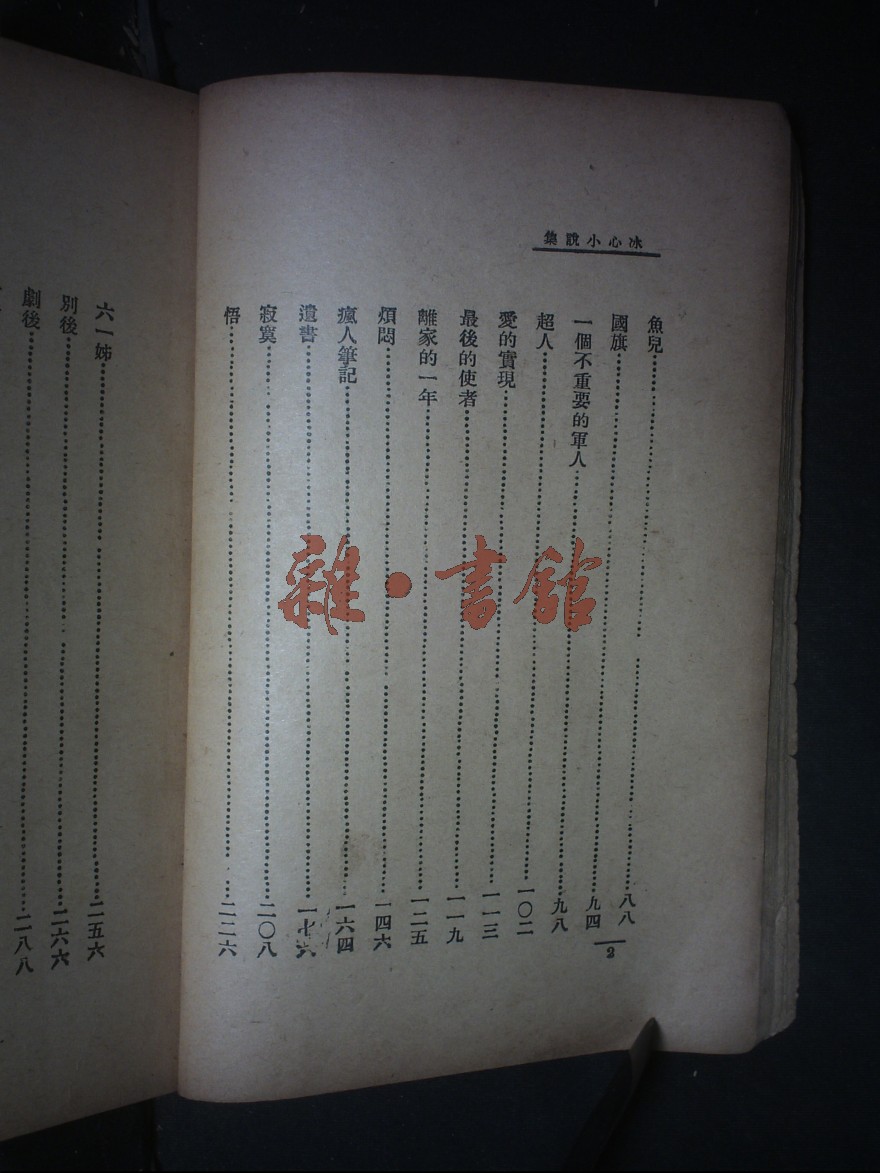 冰心小說集
魚兒……八八
國旗……九四
一個不重要的軍人……九八
超人……一〇二
愛的實現……一一三
最後的使者……一一九
離家的一年……一二五
煩悶……一四六
瘋人筆記……一六四
遺書……一七六
寂寞……二〇八
悟……二二六
2
六一姊……二五六
別後……二六六
劇後……二八八
雜·書館